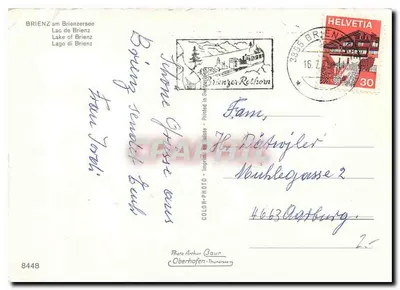 BRIENZ am Brienzersee
Lac de Brienz
Lake of Brienz
Lago di Brienz
Schöne Grüsse aus
Brienz sendet Euch
Frau
8448
COLOR-PHOTO - Imprimé en Suisse - Printed in
Photo Arthur Baur
Oberhofen-Thunersee
Brienzer Rothorn
3855 BRIEN
16.7.
HELVETIA
30
Fam,
Hs Dätwyler
Muhlegasse 2
4663 Aarburg
2.-